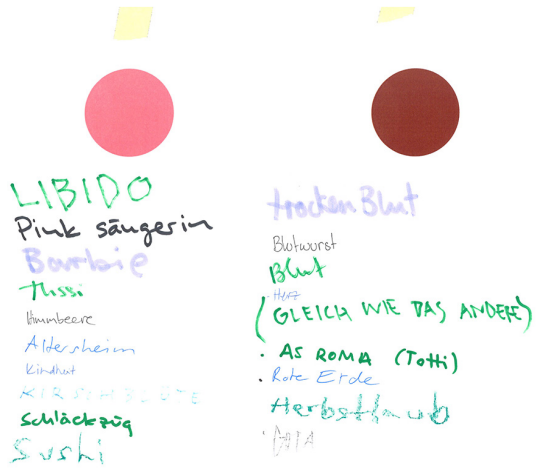 LIBIDO
Pink sängerin
Barbie
Tussi
Himmbeere
Altersheim
Kindheit
KIRSCHBLÜTE
Schläckzüg
Sushi
trocken Blut
Blutwurst
Blut
Herz
(GLEICH WIE DAS ANDERE)
· AS ROMA (Totti)
· Rote Erde
Herbstlaub